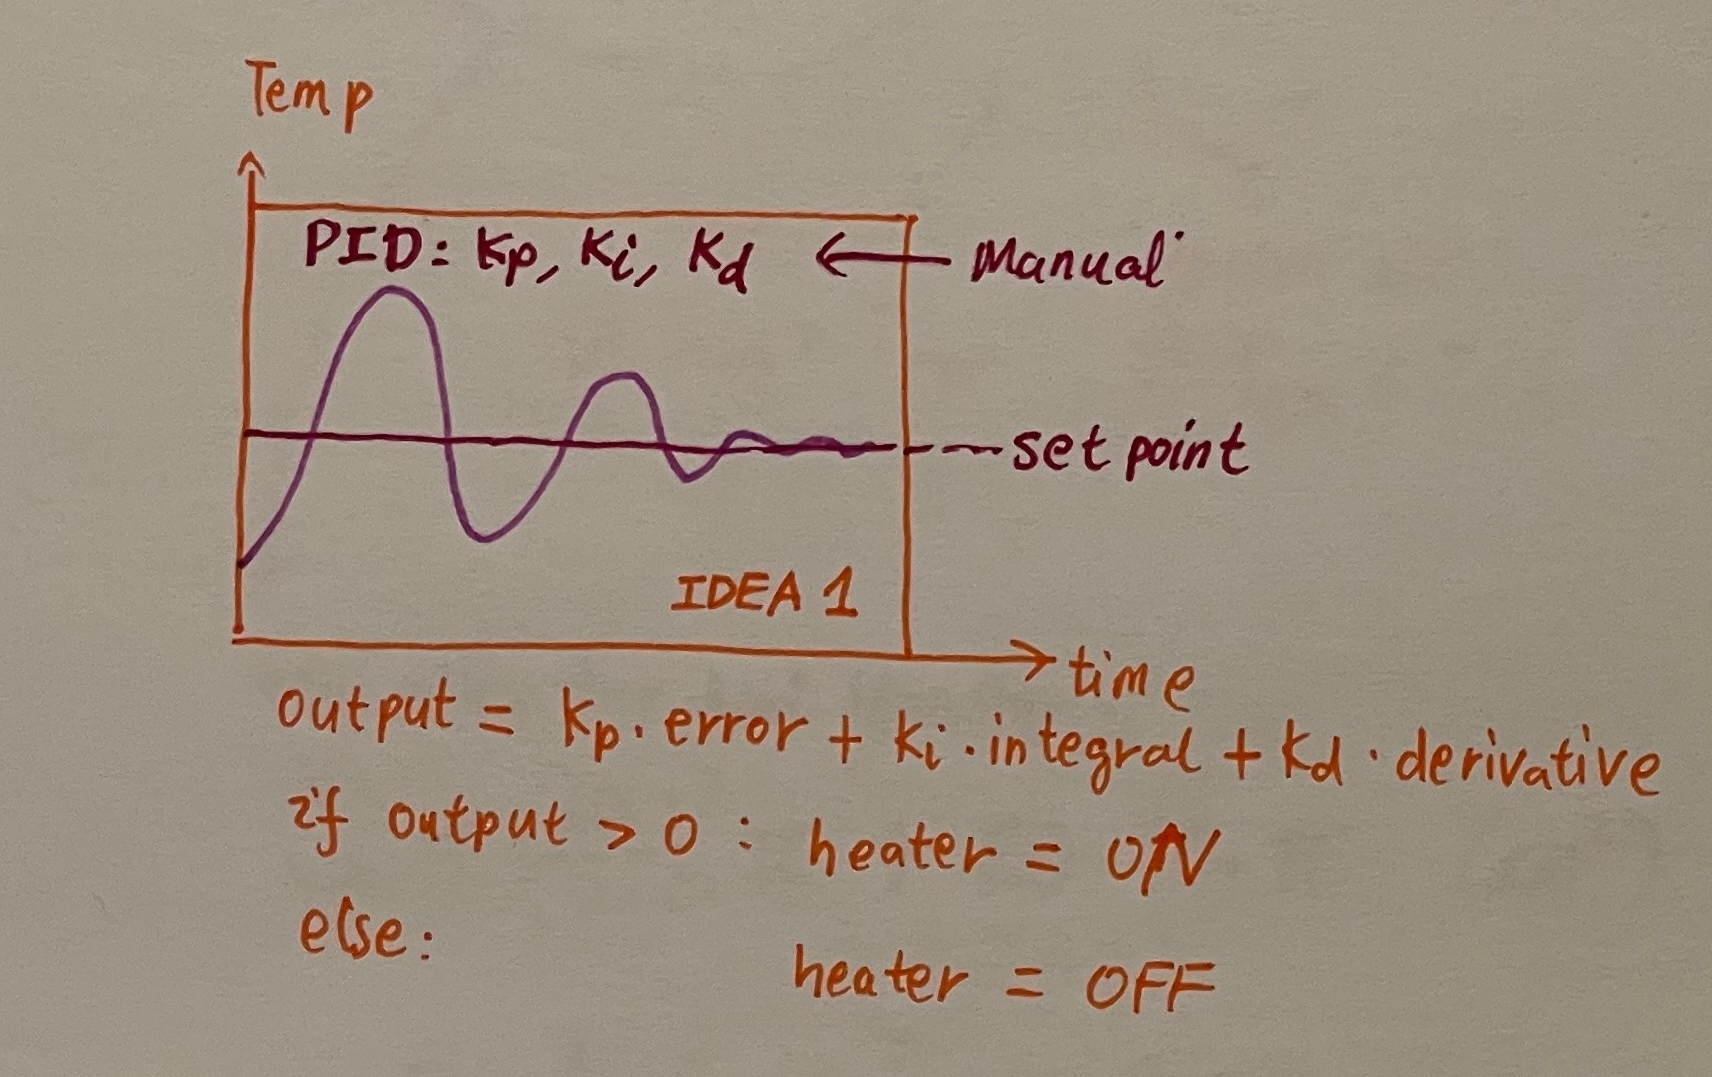 Temp
PID: Kp, Ki, Kd ← Manual
set point
IDEA 1
time
output = Kp · error + Ki · integral + Kd · derivative
if output > 0 : heater = ON
else:
heater = OFF